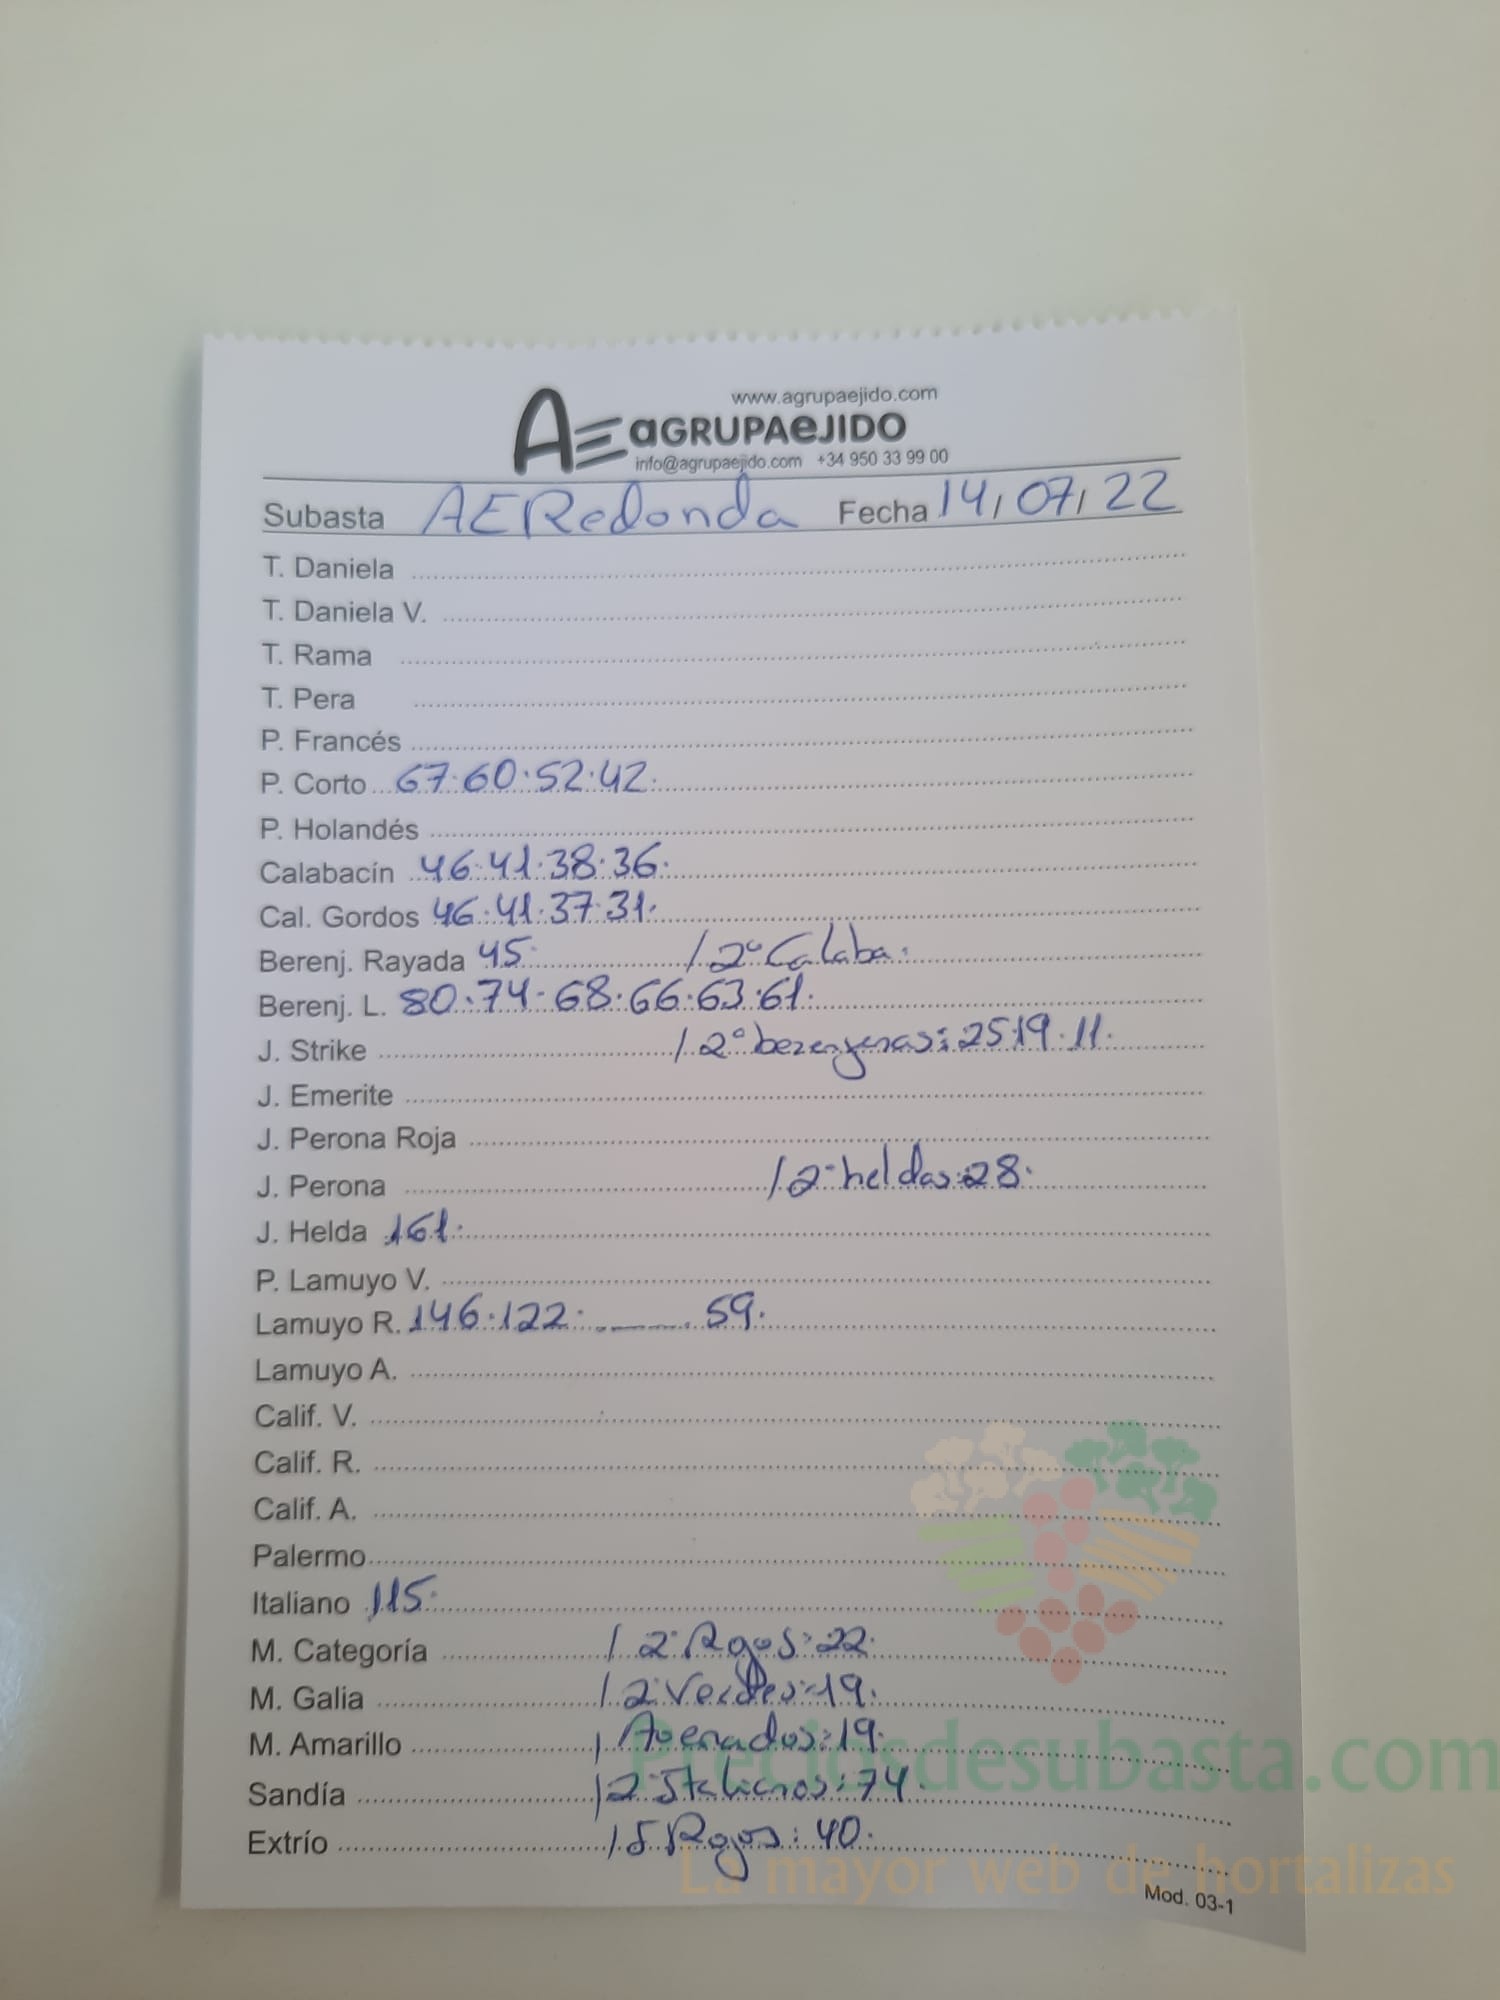 www.agrupaejido.com
AE aGRUPAeJIDO
info@agrupaejido.com +34 950 33 99 00
Subasta AERedonda Fecha 14/07/22
T. Daniela
T. Daniela V.
T. Rama
T. Pera
P. Francés
P. Corto 67.60.52.42.
P. Holandés
Calabacín 46.41.38.36.
Cal. Gordos 46.41.37.31.
Berenj. Rayada 45. / 2º Calaba.
Berenj. L. 80.74-68.66.63.61.
J. Strike / 2º berenjenas: 25 19.11.
J. Emerite
J. Perona Roja
J. Perona / 2ª heldas: 28.
J. Helda 161.
P. Lamuyo V.
Lamuyo R. 146.122.____.59.
Lamuyo A.
Calif. V.
Calif. R.
Calif. A.
Palermo
Italiano 115.
M. Categoría / 2ª Rojos: 22.
M. Galia / 2ª Verdes: 19.
M. Amarillo / Asenados: 19.
Sandía / 2 Italianos: 74.
Extrío / 5 Rojos: 40.
Mod. 03-1
Preciosdesubasta.com
La mayor web de hortalizas